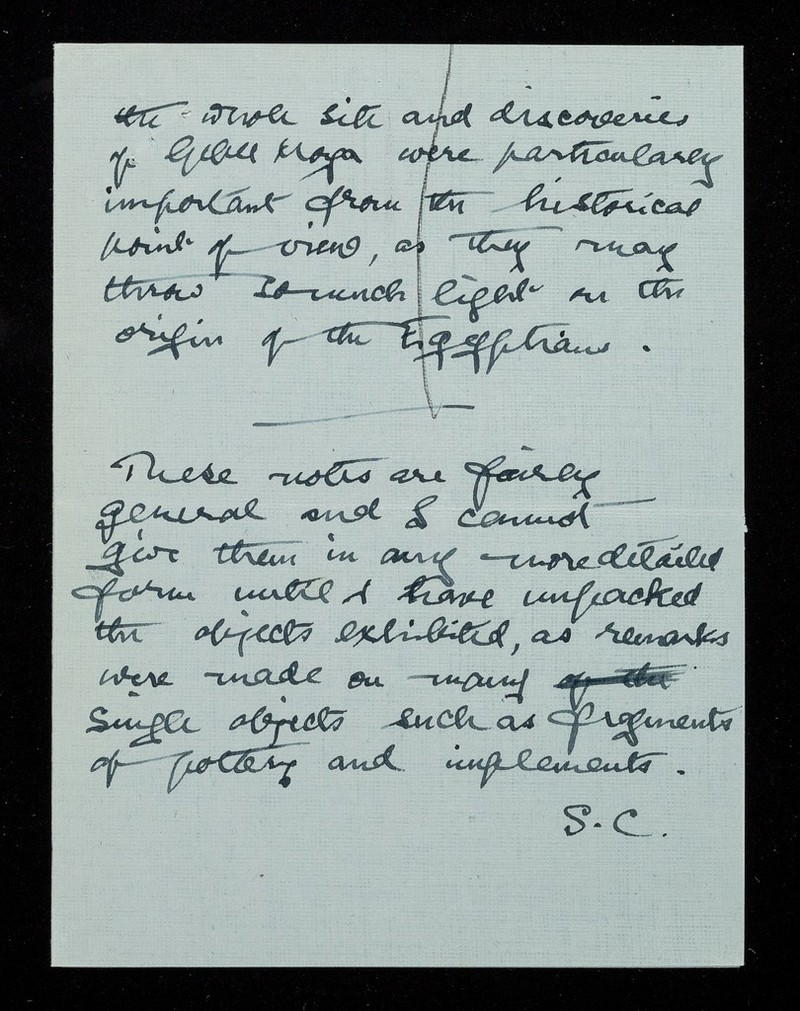 the whole site and discoveries
of Gebel Moya were particularly
important from the historical
point of view, as they may
throw so much light on the
origin of the Egyptians.
These notes are fairly
general and I cannot
give them in any more detailed
form until I have unpacked
the objects exhibited, as remarks
were made on many of the
single objects such as fragments
of pottery and implements.
S.C.